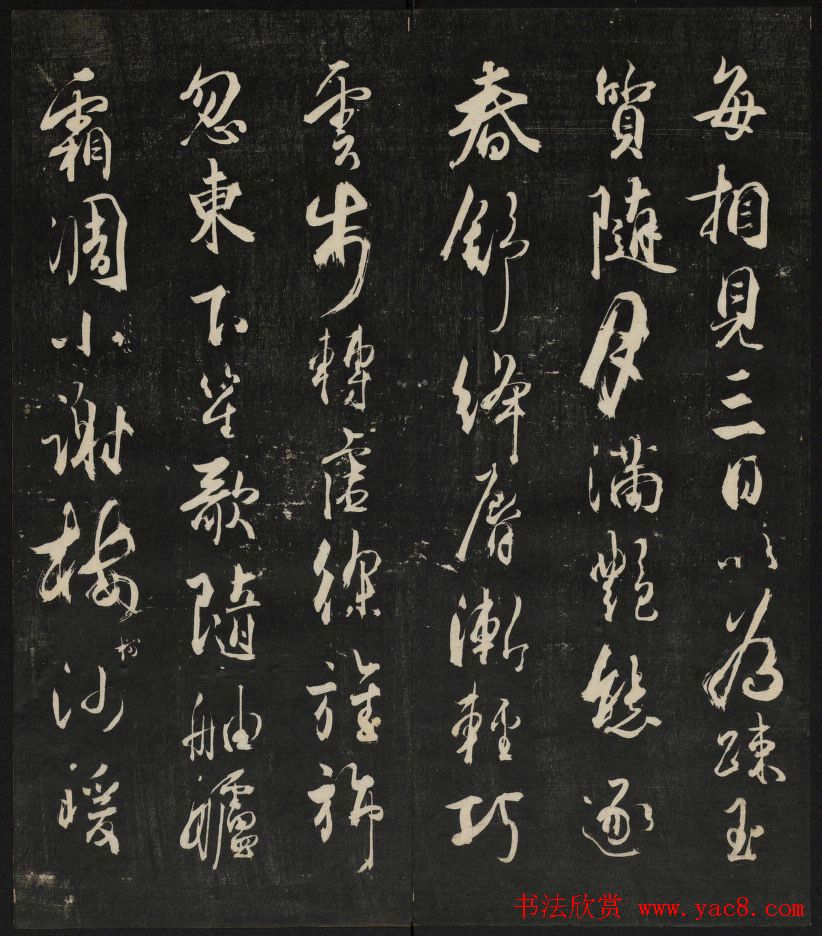 每相見三日以為踈玉
質隨月滿艷態逐
春舒絳脣漸輕巧
雲步轉虛徐旌旆
忽東下笙歌隨舳艫
霜凋小謝樓沙暖
书法欣赏 www.yac8.com